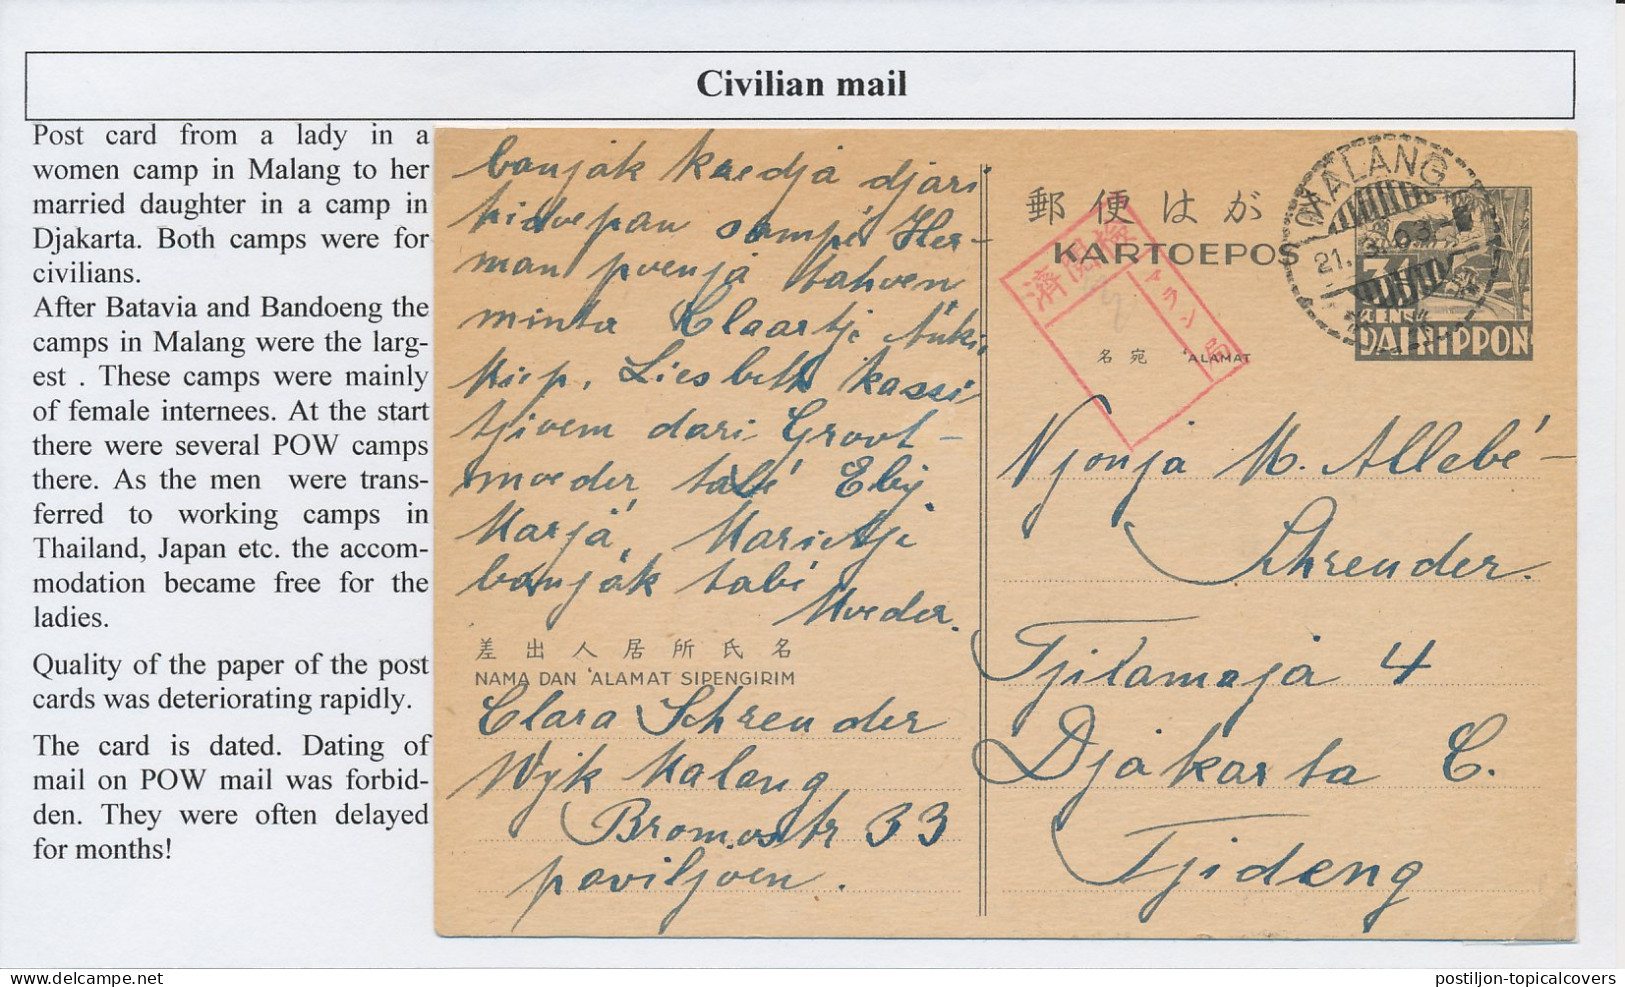 Civilian mail
Post card from a lady in a
women camp in Malang to her
married daughter in a camp in
Djakarta. Both camps were for
civilians.
After Batavia and Bandoeng the
camps in Malang were the larg-
est . These camps were mainly
of female internees. At the start
there were several POW camps
there. As the men were trans-
ferred to working camps in
Thailand, Japan etc. the accom-
modation became free for the
ladies.
Quality of the paper of the post
cards was deteriorating rapidly.
The card is dated. Dating of
mail on POW mail was forbid-
den. They were often delayed
for months!
banjak kredja djari
hidoepan sampé Her-
man poenja tahoen
minta Claartje
Liesbeth kassi
tjioem dari Groot-
moeder tabé Elly
Marja, Marietje
banjak tabé
Moeder.
差出人居所氏名
NAMA DAN 'ALAMAT SIPENGIRIM
Clara Schreuder
Wijk Malang
Bromostr 33
paviljoen.
郵便はがき
KARTOEPOS
MALANG
21.
CENT
DAI NIPPON
検閲済
マラン
名宛 'ALAMAT
Njonja M. Allebé-
Schreuder.
Tjitamaja 4
Djakarta C.
Tjideng
postiljon-topicalcovers